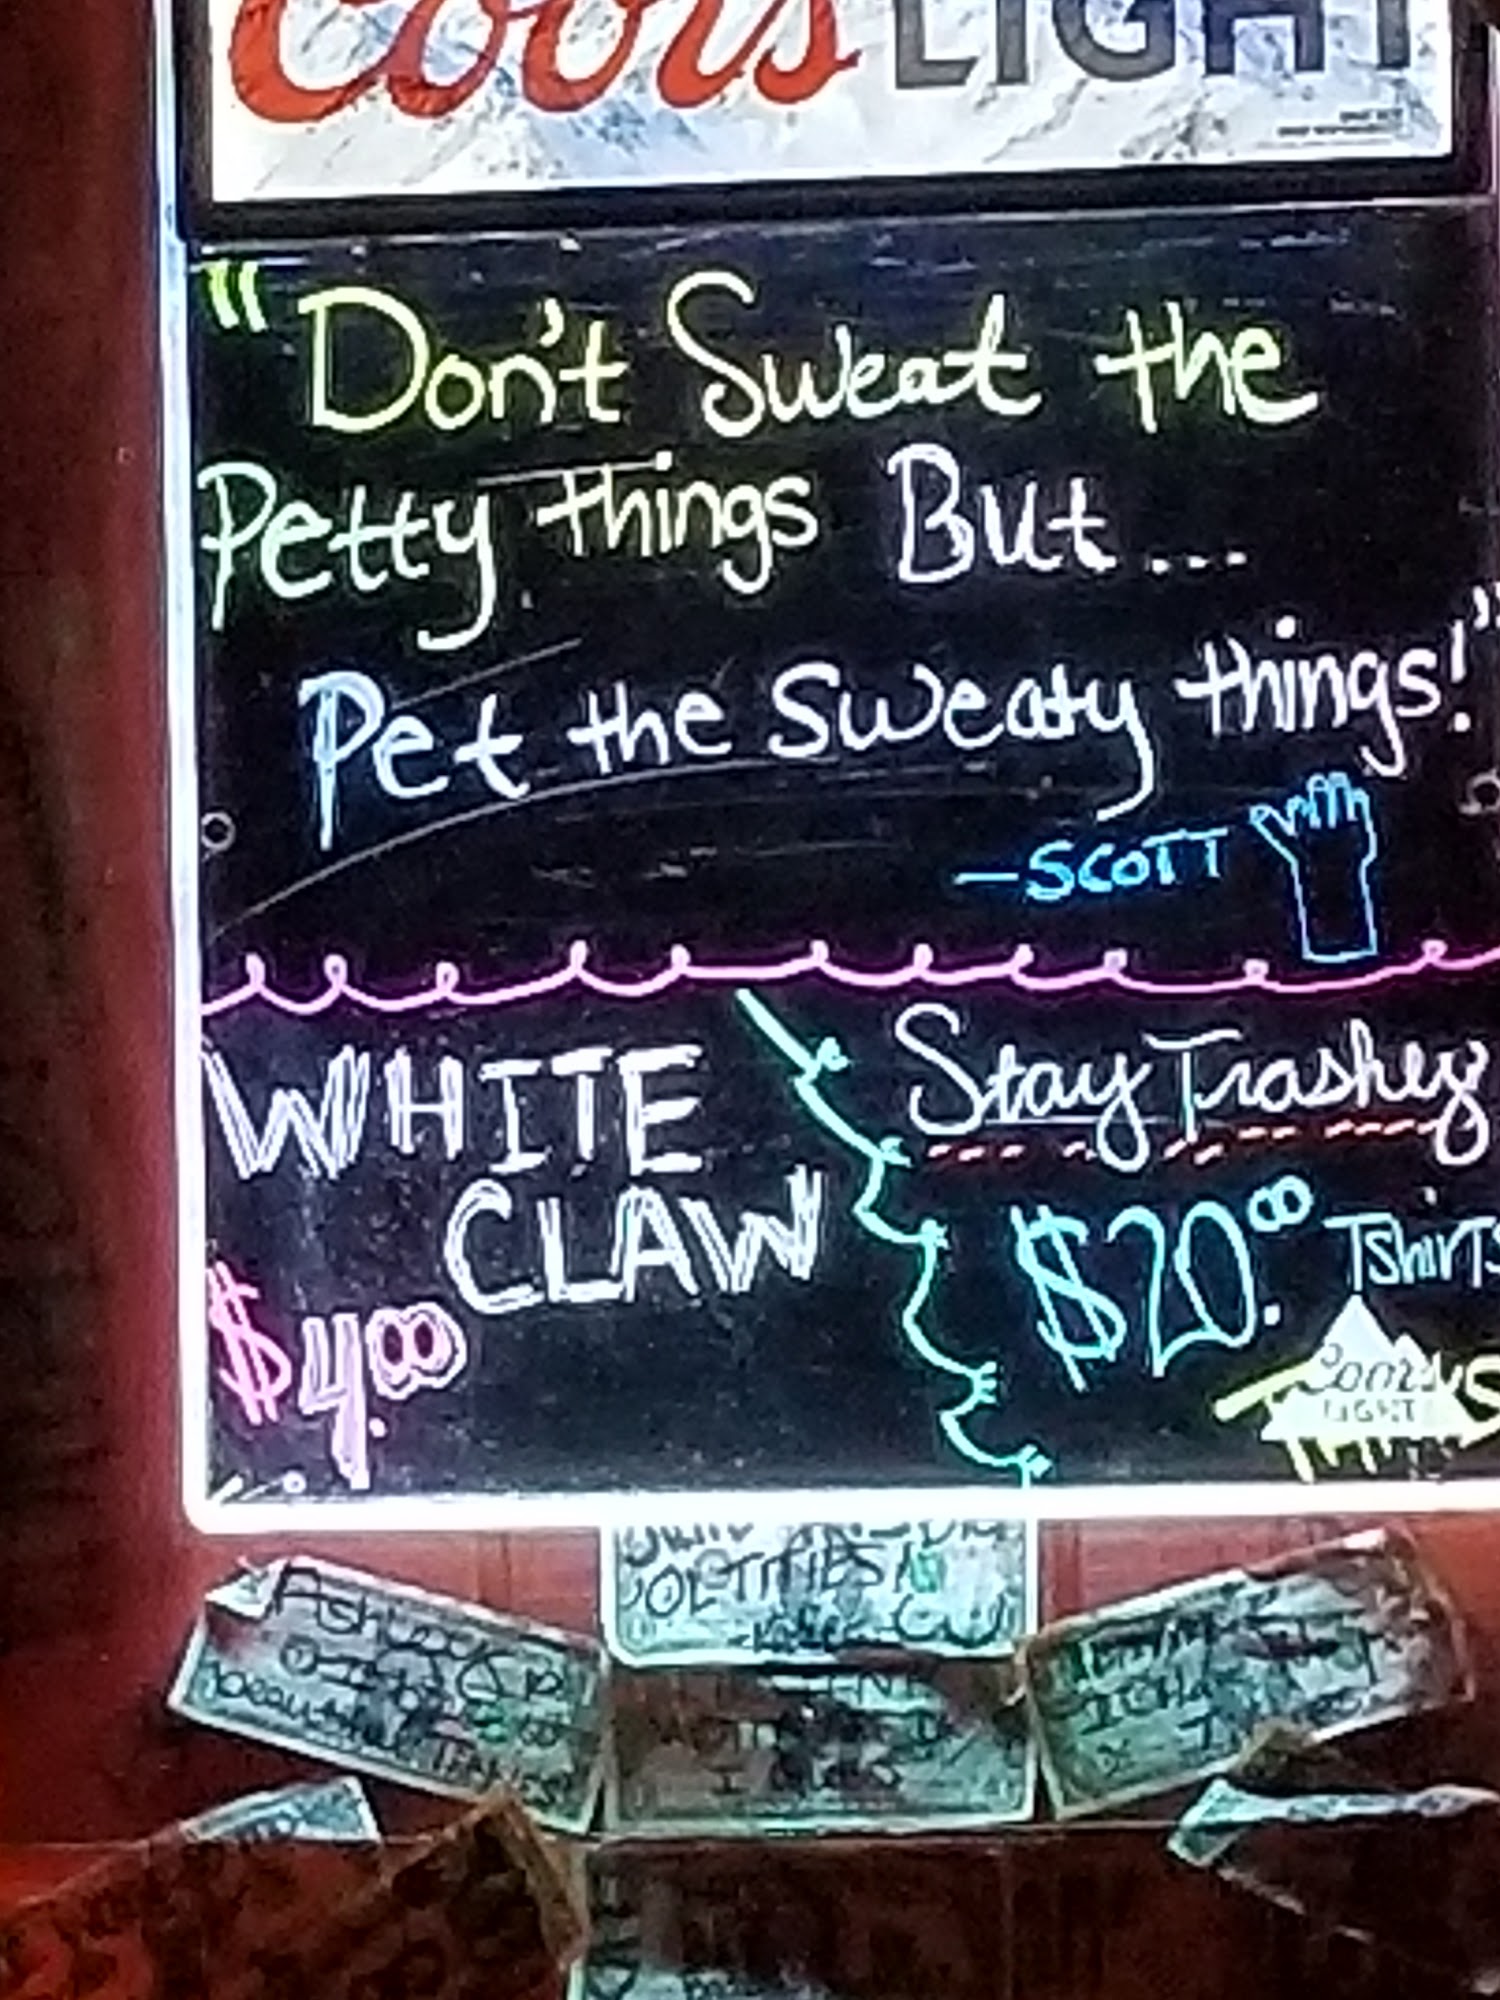 Coors LIGHT
"Don't Sweat the
Petty things But...
Pet the Sweaty things!"
-SCOTT
WHITE
CLAW
$4.00
Stay Trashy
$20.00 Tshirts
Coors
LIGHT